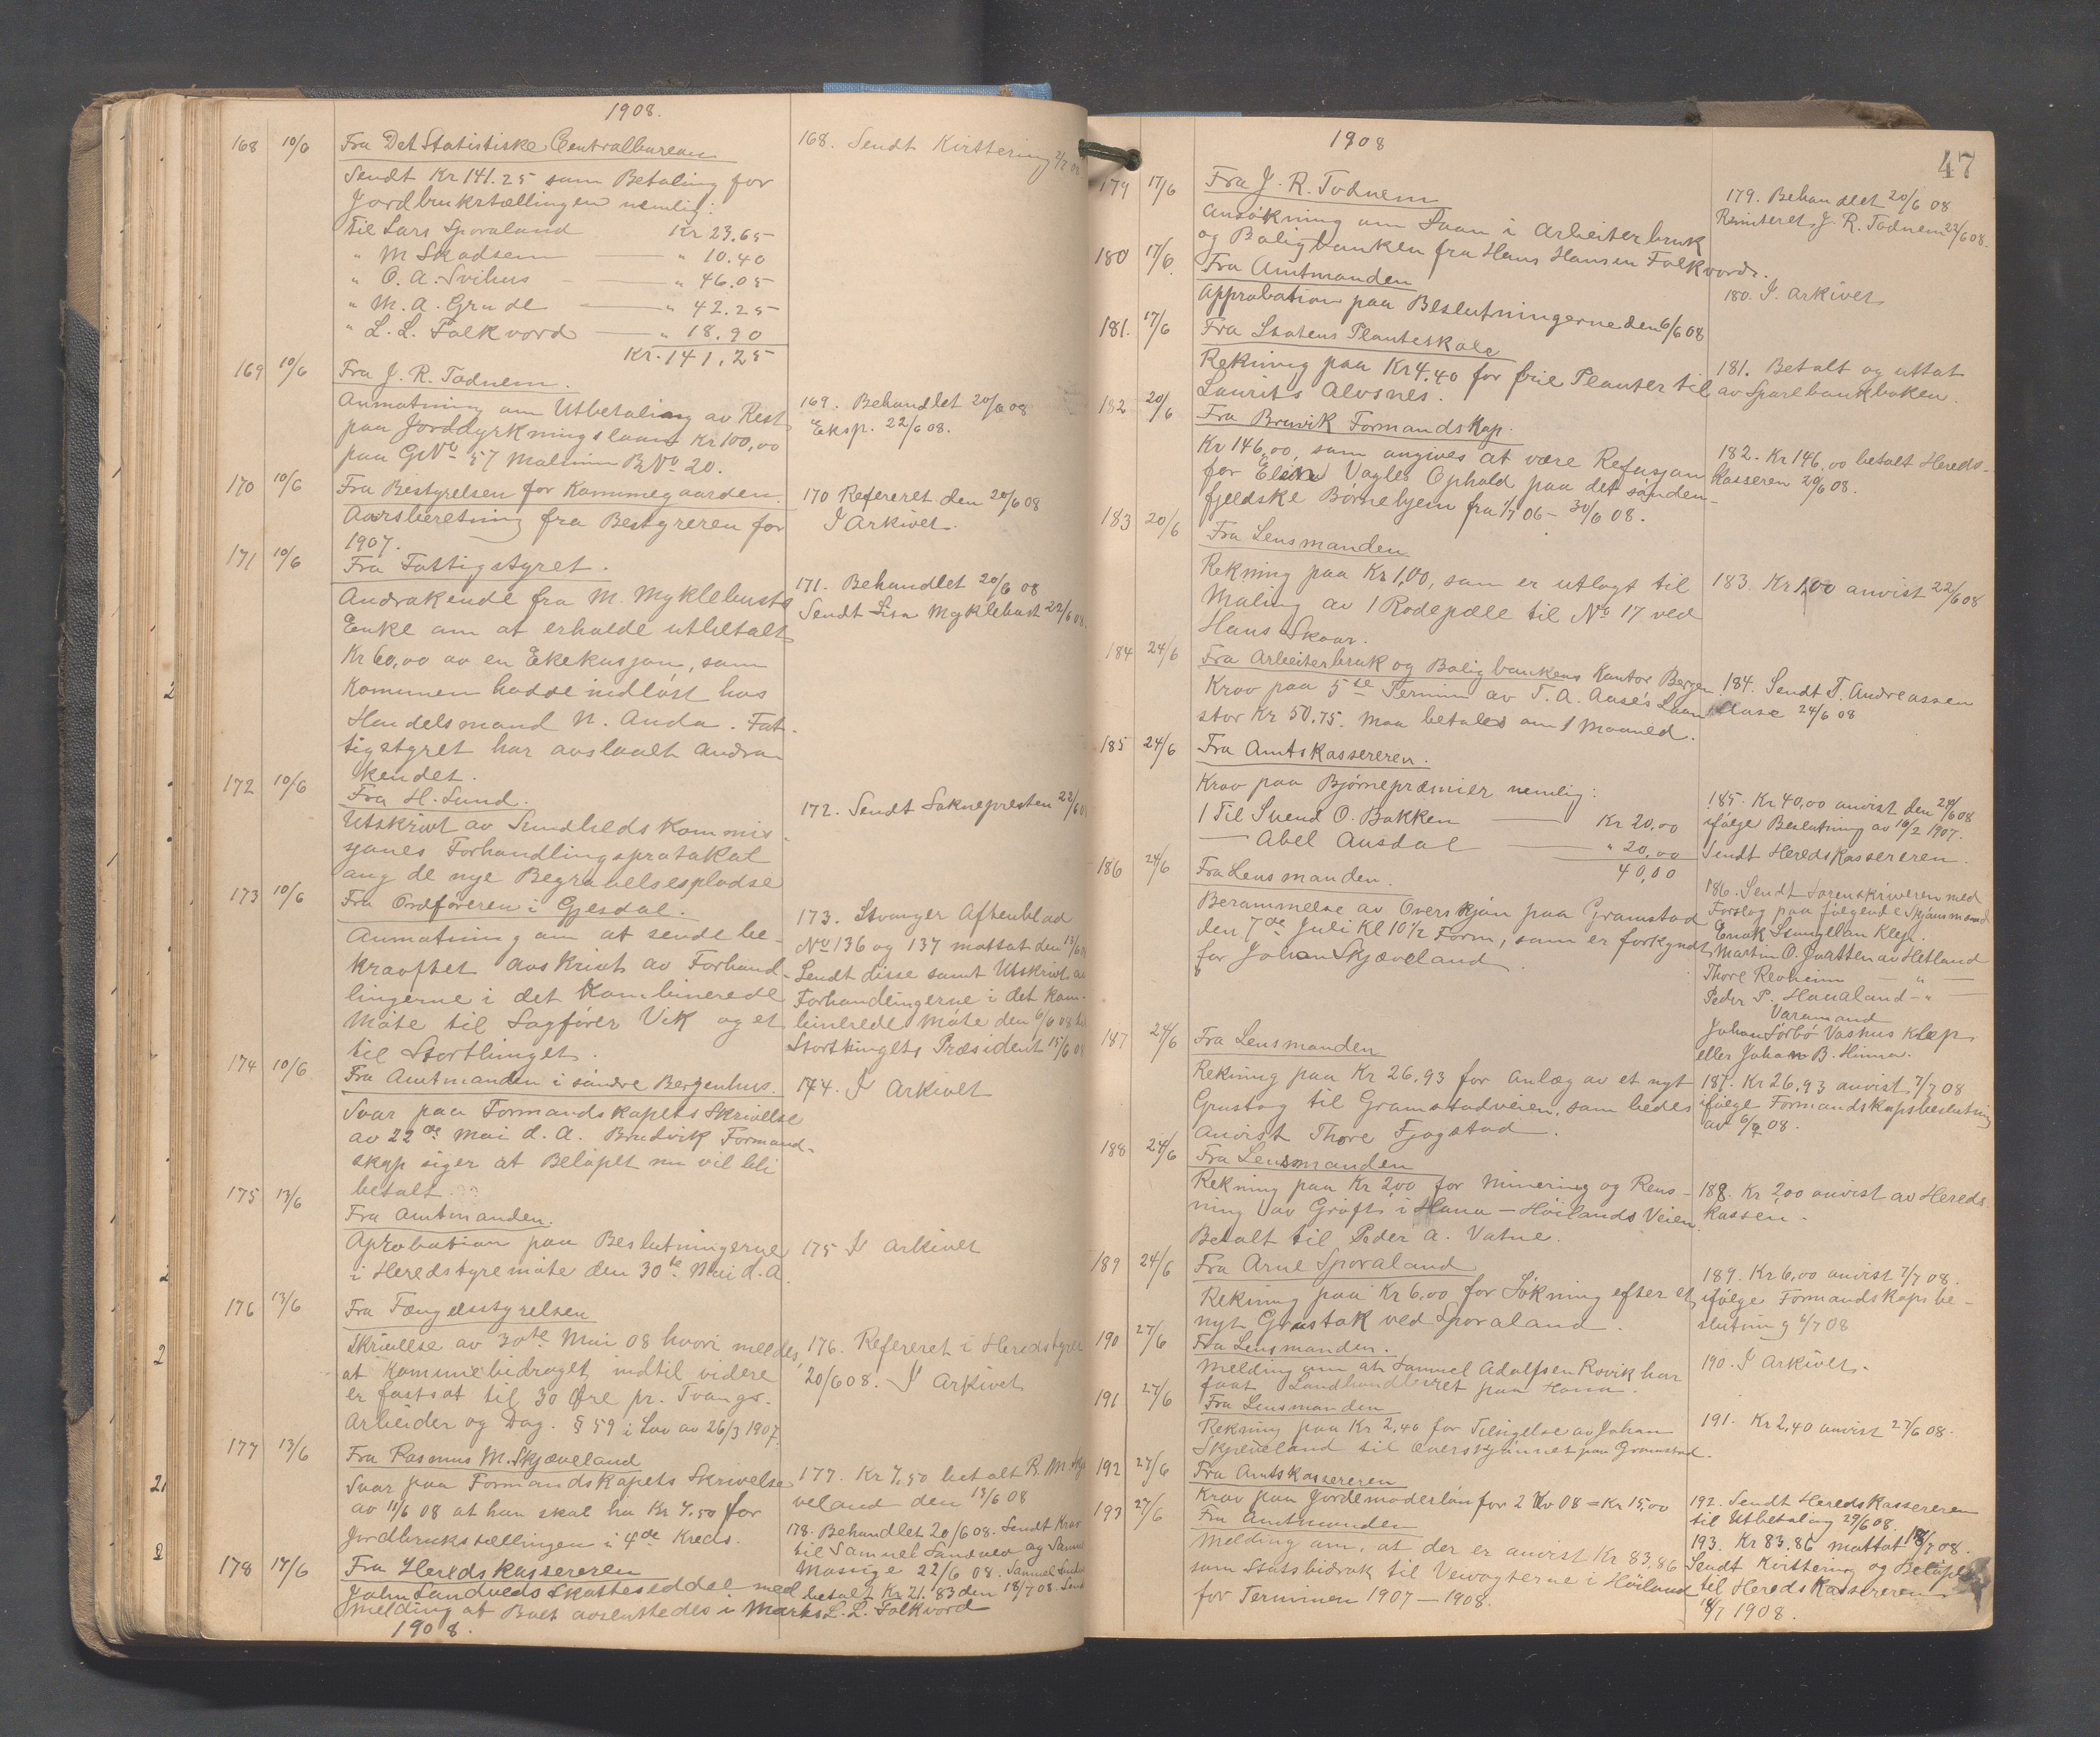 1908.
168 10/6 Fra Det Statistiske Centralbureau
Sendt Kr 141.25 som Betaling for
Jordbrukstællingen nemlig:
Til Lars Sporaland Kr 23.65
" M Skadsem " 10.40
" O. A. Svihus " 46.05
" M. A. Grude " 42.25
" L. L. Folkvord " 18.90
Kr. 141.25
168. Sendt Kvittering 2/7 08
169 10/6 Fra J. R. Todnem.
Anmotning om Utbetaling av Rest
paa Jorddyrkningslaan Kr 100,00
paa GNo 57 Malmim BNo 20.
169. Behandlet 20/6 08
Eksp. 22/6 08.
170 10/6 Fra Bestyrelsen for Kommuegaarden.
Aarsberetning fra Bestyreren for
1907.
170 Refereret den 20/6 08
I Arkivet.
171 10/6 Fra Fattigstyret.
Andrakende fra M. Myklebusts
Enke om at erholde utbetalt
Kr 60,00 av en Ekekusjon, som
Kommunen hadde indløst hos
Handelsmand N. Anda. Fat-
tigstyret har avslaalt Andra-
kendet.
171. Behandlet 20/6 08
Sendt Lisa Myklebust 22/6 08.
172 10/6 Fra H. Lund.
Utskrivt av Sundheds Kommis-
sjones Forhandlingsprotokol
ang de nye Begravelsesplodse
172. Sendt Soknepresten 22/6 08
173 10/6 Fra Ordføreren i Gjesdal.
Anmotning om at sende be-
kraoftet Avskrivt av Forhand-
lingerne i det Kombinerede
Møte til Sagfører Vik og et
til Stortinget.
173. Stvanger Aftenblad
No 136 og 137 mottat den 13/6 08
Sendt disse samt Utskrivt av
Forhandlingerne i det Kom-
binerede Møte den 6/6 08 til
Stortingets Præsident 15/6 08
174 10/6 Fra Amtmanden i søndre Bergenhus.
Svar paa Formandskapets Skrivelse
av 22de Mai d. A. Brudvik Formand-
skap siger at Beløpet nu vil bli
betalt.
174. I Arkivet
175 13/6 Fra Amtmanden.
Aprobation paa Beslutningerne
i Heredstyremøte den 30te Mai d. A.
175 I Arkivet
176 13/6 Fra Fængelsstyrelsen
Skrivelse av 30te Mai 08 hvori meldes,
at Kommuebidraget indtil videre
er fastsat til 30 Øre pr. Tvangs-
Arbeider og Dag. § 59 i Lov av 26/3 1907.
176. Refereret i Heredstyret
20/6 08. I Arkivet
177 13/6 Fra Rasmus M. Skjæveland
Svar paa Formandskapets Skrivelse
av 11/6 08 at han skal ha Kr 7.50 for
Jordbrukstællingen i 4de Kreds.
177. Kr 7.50 betalt R. M. Skjæ
veland den 13/6 08
178 17/6 Fra Heredskassereren
John Sandveds Skatteseddel med
Melding at Boet avsluttedes i Marts
1908.
178. Behandlet 20/6 08. Sendt Krav
til Samuel Sandved og Samuel
Mossige 22/6 08. Samuel Sandved
betalt Kr 21.83 den 18/7 08. Sendt
L. L. Folkvord
1908
47
179 17/6 Fra J. R. Todnem
Ansøkning om Laan i Arbeiterbruk
og Boligbanken fra Hans Hansen Folkvord.
179. Behandlet 20/6 08
Remiteret J. R. Todnem 22/6 08.
180 17/6 Fra Amtmanden
Approbation paa Beslutningerne den 6/6 08
180. I Arkivet
181. 17/6 Fra Statens Planteskole
Rekning paa Kr 4.40 for frie Planter til
Laurits Alvsnes.
181. Betalt og uttat
av Sparebankboken.
182 20/6 Fra Bruvik Formandskap.
Kr 146,00, som angives at være Refusjon
for Eline Vagles Ophold paa det sønden-
fjeldske Børnehjem fra 1/7 06 – 30/6 08.
182. Kr 146,00 betalt Hereds-
kasseren 20/6 08.
183 20/6 Fra Lensmanden
Rekning paa Kr 1,00, som er utlagt til
Maling av 1 Rodepæle til No 17 ved
Hans Skaar.
183. Kr 1,00 anvist 22/6 08
184 24/6 Fra Arbeiterbruk og Boligbankens Kontor Bergen
Krav paa 5te Termin av T. A. Aase's Laan
stor Kr 50.75. Maa betales om 1 Maaned.
184. Sendt T. Andreassen
Aase 24/6 08
185 24/6 Fra Amtskassereren.
Krav paa Bjørnepræmier nemlig:
1 Til Svend O. Bakken Kr 20,00
Abel Ausdal " 20,00
40,00
185. Kr. 40,00 anvist den 24/6 08
ifølge Beslutning av 16/2 1907.
Sendt Heredskassereren.
186 24/6 Fra Lensmanden.
Berammelse av Overskjøn paa Gramstad
den 7de Juli Kl 10½ Form, som er forkyndt
for Johan Skjæveland
186. Sendt Sorenskriveren med
Forslag paa følgende Skjønsmænd
Enok Stangelan Klep.
Martin O. Jvatten av Hetland
Thore Revheim "
Peder P. Haualand "
Varamand
Johan Sørbø Vashus Klep
eller Johan B. Hinna.
187 24/6 Fra Lensmanden
Rekning paa Kr 26.93 for Anlæg av et nyt
Grustag til Gramstadveien, som bedes
anvist Thore Fjogstad.
187. Kr 26.93 anvist 7/7 08
ifølge Formandskapsbeslutning
av 6/7 08.
188 24/6 Fra Lensmanden
Rekning paa Kr 2,00 for Minering og Rens-
ning av Grøft i Hana – Høilands Veien.
Betalt til Peder A. Vatne.
188. Kr 2,00 anvist av Hereds-
kassen.
189 24/6 Fra Arne Sporaland
Rekning paa Kr 6,00 for Søkning efter et
nyt Grustak ved Sporaland.
189. Kr 6,00 anvist 7/7 08.
ifølge Formandskapsbe-
slutning 6/7 08
190 27/6 Fra Lensmanden.
Melding om at Samuel Adolfsen Rovik har
faat Landhandleret paa Hana.
190. I Arkivet.
191 27/6 Fra Lensmanden
Rekning paa Kr 2,40 for Tilsigelse av Johan
Skjæveland til Overskjønnet paa Gramstad.
191. Kr 2,40 anvist 27/6 08.
192 27/6 Fra Amtskassereren
Krav paa Jordemoderløn for 2 Kv 08 = Kr 15,00
192. Sendt Heredskassereren
til Utbetaling 29/6 08.
193 27/6 Fra Amtmanden
Melding om, at der er anvist Kr 83,86
som Statsbidrak til Veivogterne i Høiland
for Terminen 1907 – 1908.
193. Kr 83.86 mottat 18/7 08.
Sendt Kvittering og Beløpet
til Heredskassereren
18/7 1908.